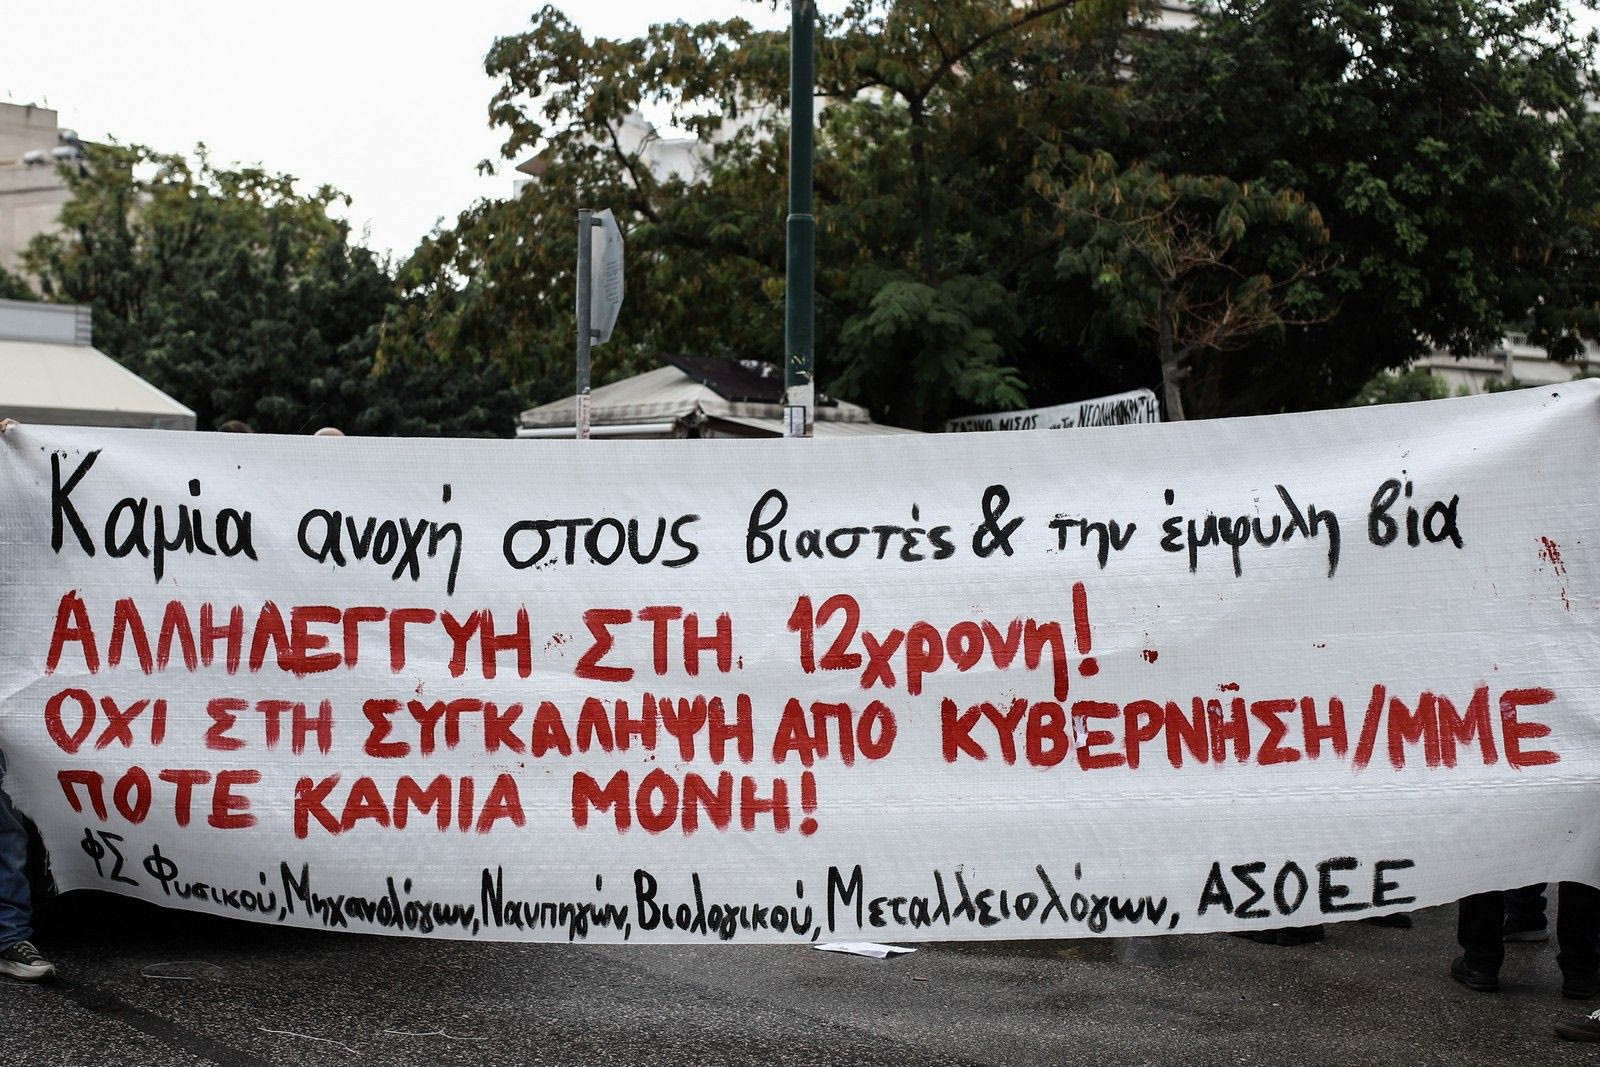 ΤΑΞΙΚΟ ΜΙΣΟΣ για την ΝΕΟΔΗΜΟΚΡΑΤΗ
Καμία ανοχή στους βιαστές & την έμφυλη βία
ΑΛΛΗΛΕΓΓΥΗ ΣΤΗ 12χρονη!
ΟΧΙ ΣΤΗ ΣΥΓΚΑΛΗΨΗ ΑΠΟ ΚΥΒΕΡΝΗΣΗ/ΜΜΕ
ΠΟΤΕ ΚΑΜΙΑ ΜΟΝΗ!
ΦΣ Φυσικού, Μηχανολόγων, Ναυπηγών, Βιολογικού, Μεταλλειολόγων, ΑΣΟΕΕ